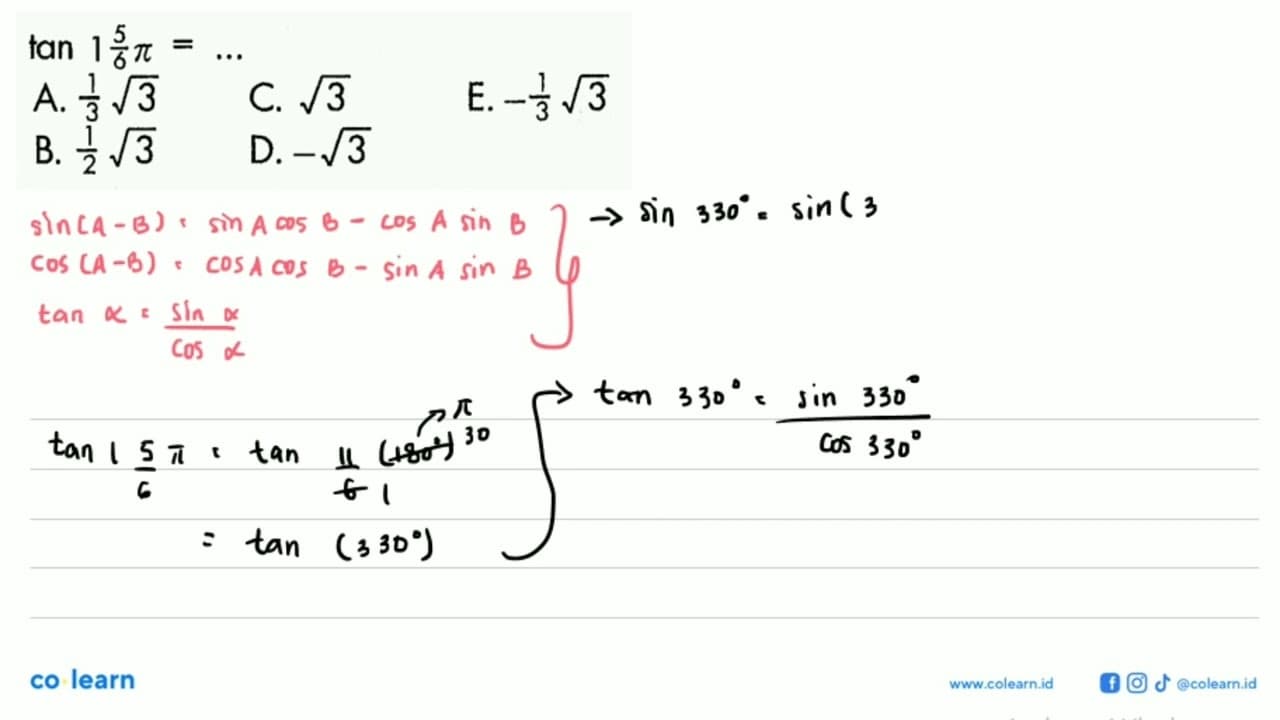 tan 1 5/6 π = ...
A. 1/3 √3 C. √3 E. -1/3 √3
B. 1/2 √3 D. -√3
sin(A-B) = sin A cos B - cos A sin B
cos(A-B) = cos A cos B - sin A sin B
tan α = sin α / cos α
→ sin 330° = sin(3
tan 1 5/6 π = tan 11/6 (180°) 30 1 → π
= tan (330°)
→ tan 330° = sin 330° / cos 330°
co learn
www.colearn.id
@colearn.id